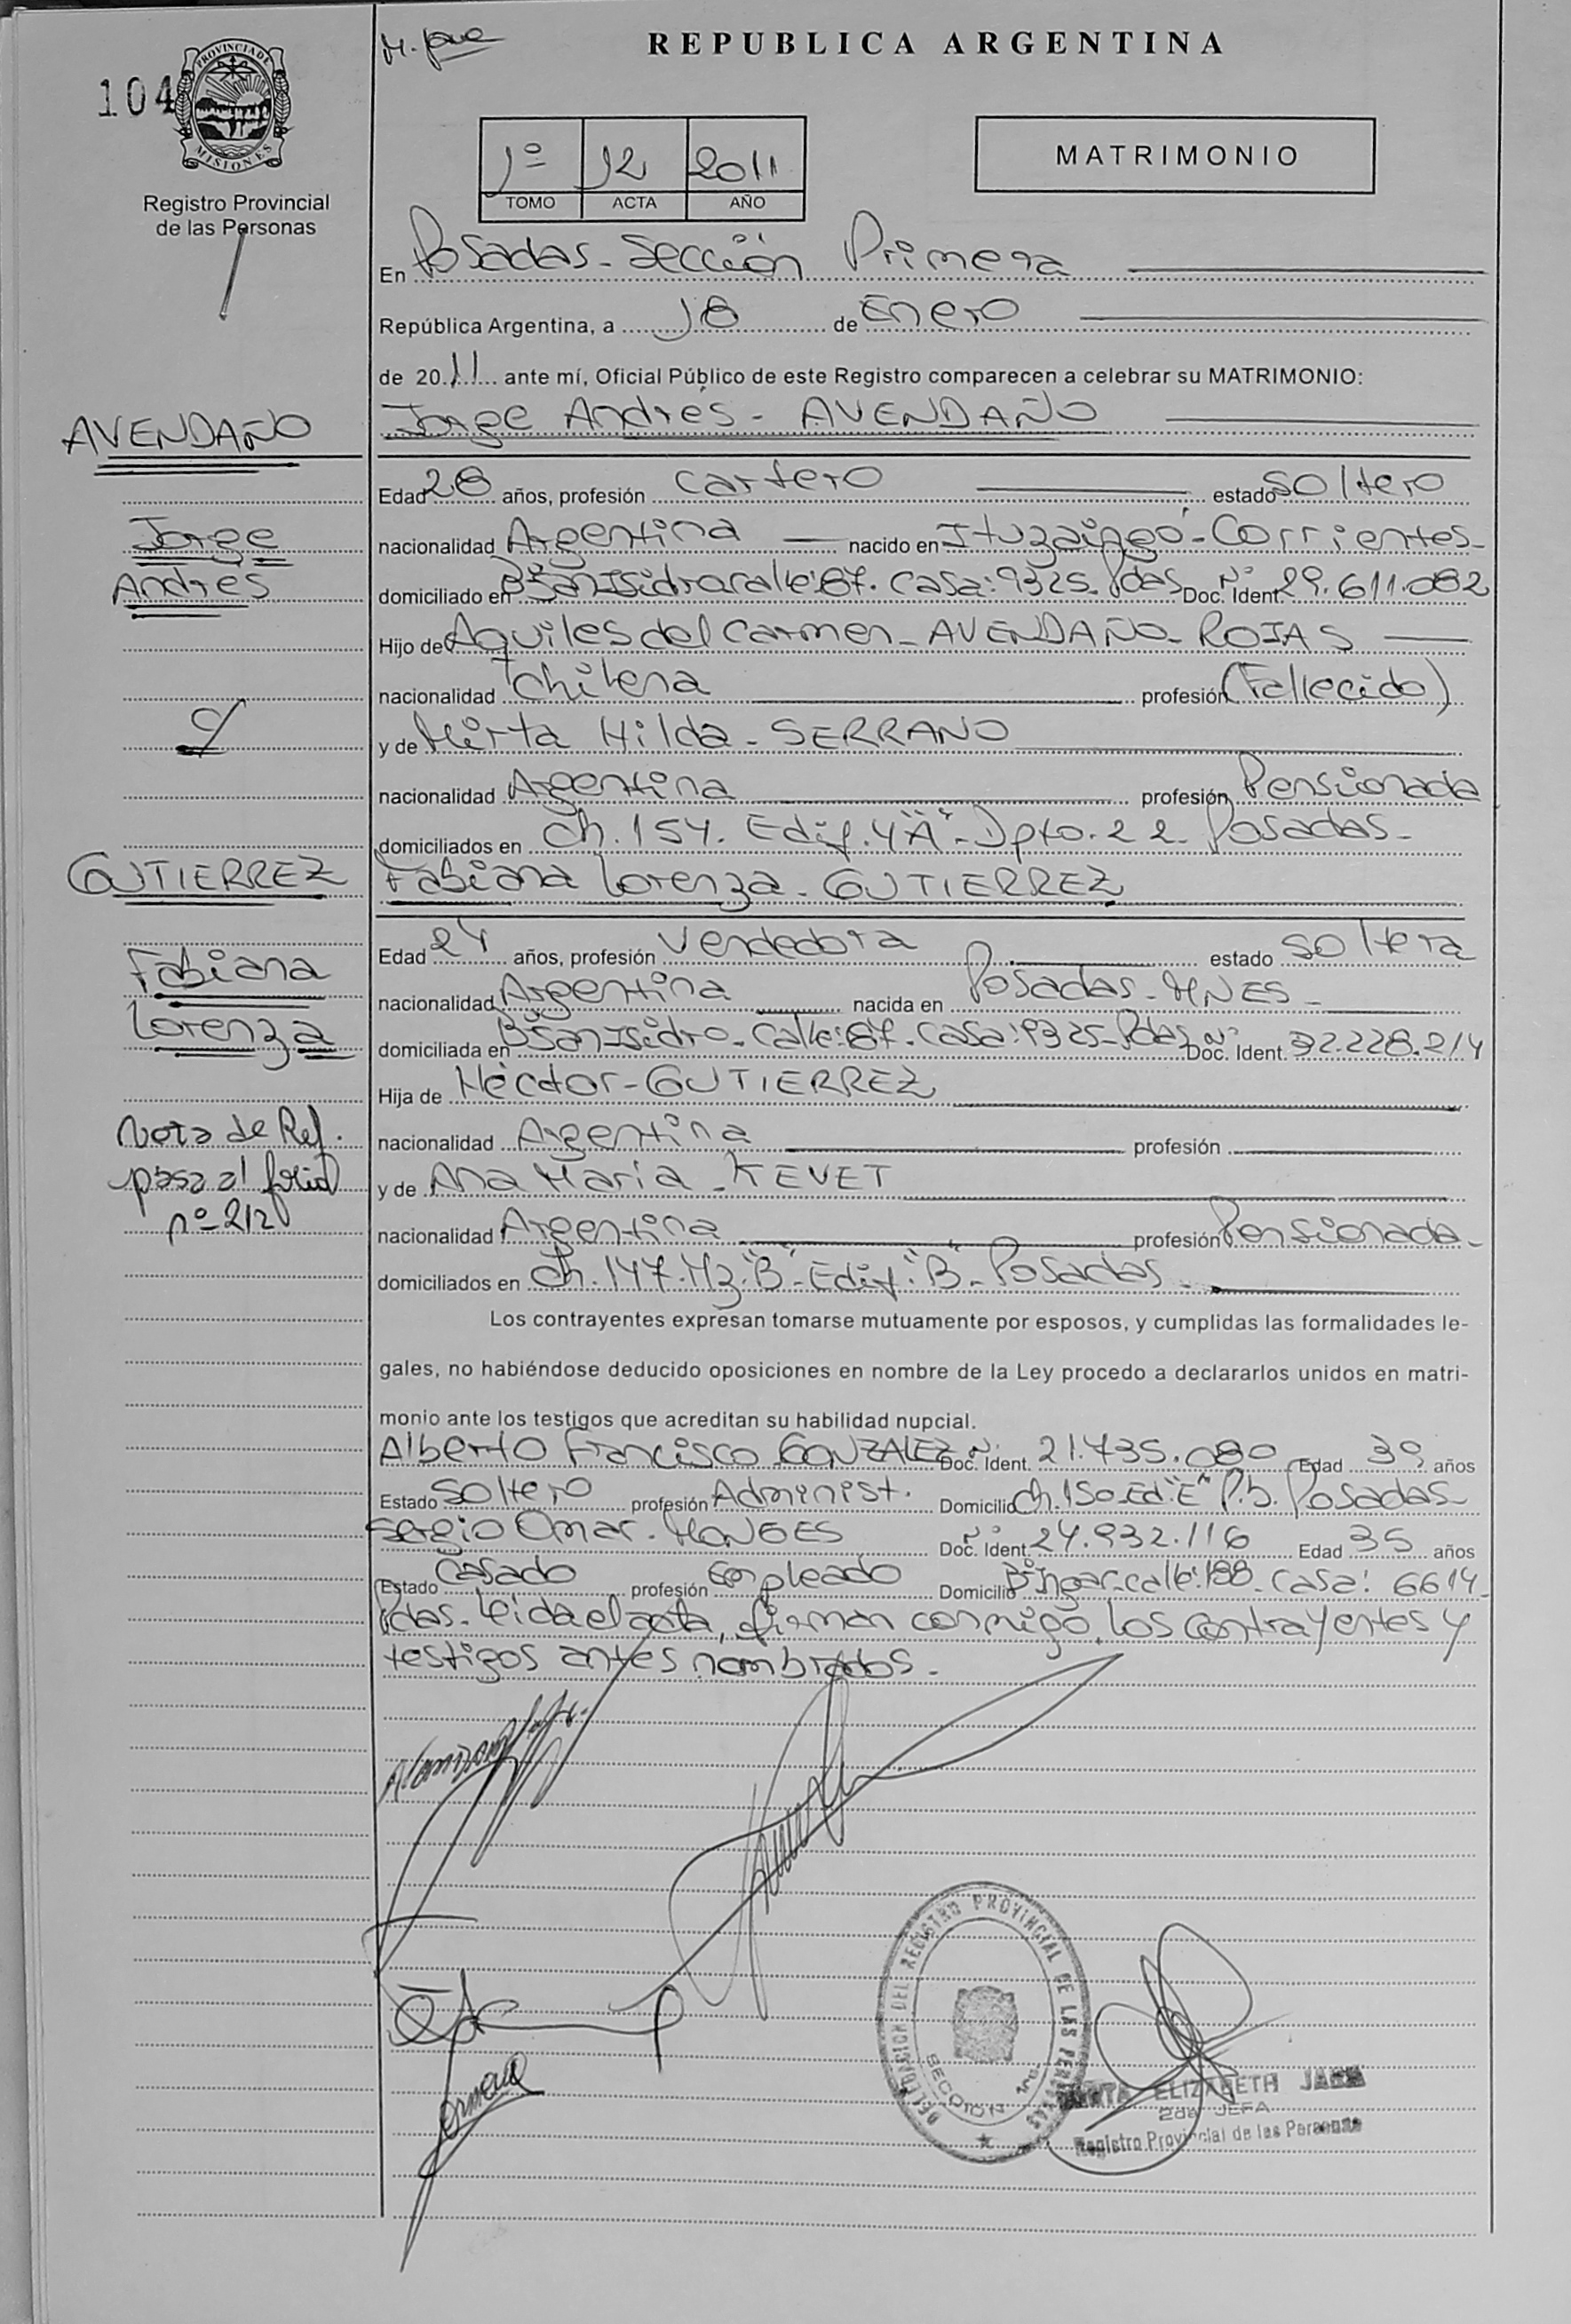 REPUBLICA ARGENTINA
104
PROVINCIA DE MISIONES
Registro Provincial
de las Personas
1º 12 2011
TOMO ACTA AÑO
MATRIMONIO
En Posadas - Sección Primera
República Argentina, a 18 de Enero
de 2011 ante mí, Oficial Público de este Registro comparecen a celebrar su MATRIMONIO:
AVENDAÑO
Jorge Andrés - AVENDAÑO
Edad 28 años, profesión Cartero estado Soltero
Jorge
nacionalidad Argentina nacido en Ituzaingó - Corrientes -
Andrés
domiciliado en Bº San Isidro calle: 87. Casa: 9325 - Pdas Doc. Ident. Nº 29.611.082
Hijo de Aquiles del Carmen - AVENDAÑO - ROJAS
nacionalidad Chilena profesión (Fallecido)
c/
y de Mirta Hilda - SERRANO
nacionalidad Argentina profesión Pensionada
domiciliados en Ch. 154. Edif. 4 "A" - Dpto. 22 Posadas -
GUTIERREZ
Fabiana Lorenza - GUTIERREZ
Edad 24 años, profesión Vendedora estado Soltera
Fabiana
nacionalidad Argentina nacida en Posadas - MNES -
Lorenza
domiciliada en Bº San Isidro - Calle: 87 - Casa: 9325 - Pdas Doc. Ident. Nº 32.228.214
Hija de Héctor - GUTIERREZ
Nota de Ref.
nacionalidad Argentina profesión
pasa al folio
y de Ana María - KEVET
nº 212
nacionalidad Argentina profesión Pensionada -
domiciliados en Ch. 147. Mz. "B" - Edif. "B" - Posadas -
Los contrayentes expresan tomarse mutuamente por esposos, y cumplidas las formalidades le-
gales, no habiéndose deducido oposiciones en nombre de la Ley procedo a declararlos unidos en matri-
monio ante los testigos que acreditan su habilidad nupcial.
Alberto Francisco GONZALEZ Doc. Ident. Nº 21.735.080 Edad 39 años
Estado Soltero profesión Administ. Domicilio Ch. 150 - Ed. "E" P.b. Posadas -
Sergio Omar - MONGES Doc. Ident. Nº 24.932.116 Edad 35 años
Estado Casado profesión Empleado Domicilio Bº Ingar - calle: 188 - Casa: 6614 -
Pdas - Leida el acta, firman conmigo, los contrayentes y
testigos antes nombrados -
DELEGACION DEL REGISTRO PROVINCIAL DE LAS PERSONAS
SECCION 1ra
ELIZABETH
2da JEFA
Registro Provincial de las Personas